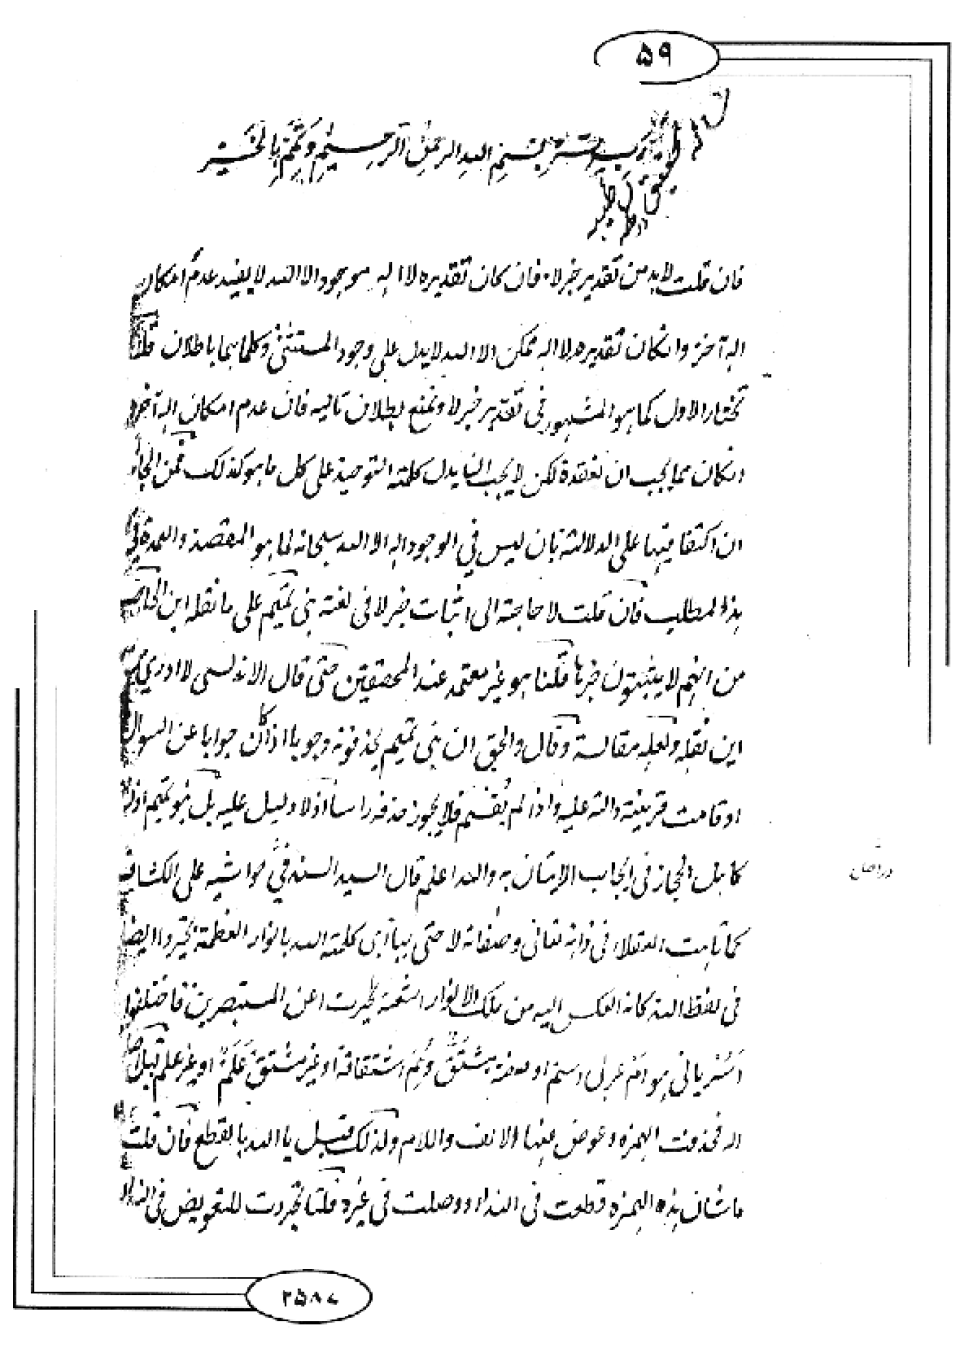 ٥٩
رب يسر بسم الله الرحمن الرحيم وتمم بالخير
فان قلت لابد من تقدير خبر لا فان كان تقديره لا اله موجود الا الله لا يفيد عدم امكان
اله آخر وانكان تقديره لا اله ممكن الا الله لا يدل على وجود المستثنى وكلاهما باطلان قلنا
نختار الاول كما هو المشهور فى تقدير خبر لا ونمنع بطلان تاليه فان عدم امكان اله آخر
انكان مما يجب ان نعتقده لكن لا يجب ان يدل كلمة التوحيد على كل ما هو كذلك فمن الجائز
ان اكتفا فيها على الدلالة بان ليس في الوجود اله الا الله سبحانه لما هو المقصد والعمدة فى
هذا المطلب فان قلت لا حاجة الى اثبات خبر لا فى لغة بنى تميم على ما نقله ابن الحاجب
من انهم لا يثبتون خبرها قلنا هو غير معتمد عند المحققين حتى قال الاندلسى لا ادري من
اين نقله ولعله مقالسة وقال والحق ان بنى تميم يحذفونه وجوبا اذا كان جوابا عن السوال
او قامت قرينة دالة عليه واذا لم تقم فلا يجوز حذفه راسا اذ لا دليل عليه بل بنو تميم اذن
كاهل الحجاز فى ايجاب الاتيان به والله اعلم قال السيد السند في حواشيه على الكشاف
كما تاهت العقلاء فى ذاته تعالى وصفاته لا حتجابها اى كلمة الله بانوار العظمة تحيروا ايضا
فى لفظ الله كانه انعكس اليه من تلك الانوار اشعة تحيرت اعن المستبصرين فاختلفوا
أسرياني هو ام عربى اسم او صفة مشتق ومم اشتقاقه او غير مشتق علم او غير علم قيل اصله
اله فحذفت الهمزه وعوض عنها الالف واللام ولذلك قيل يا الله بالقطع فان قلت
ما شان هذه الهمزه قطعت فى النداء ووصلت فى غيره قلنا تجردت للتعويض فى النداء
٢٥٨٧